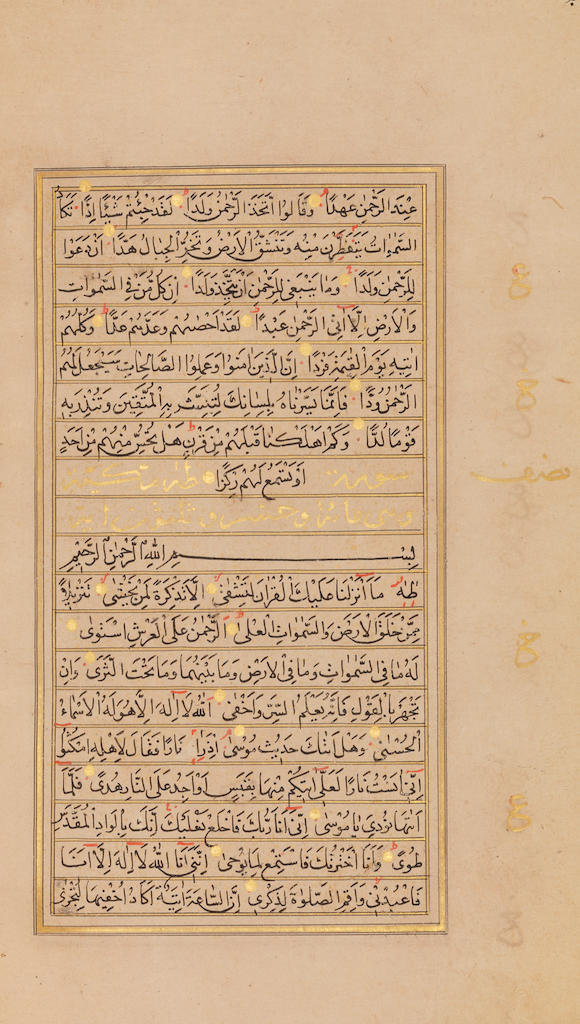 عند الرحمن عهدا وقالوا اتخذ الرحمن ولدا لقد جئتم شيئا ادا تكاد
السموات يتفطرن منه وتنشق الارض وتخر الجبال هدا ان دعوا
للرحمن ولدا وما ينبغي للرحمن ان يتخذ ولدا ان كل من في السموات
والارض الا اتي الرحمن عبدا لقد احصهم وعدهم عدا وكلهم
اتيه يوم القيمة فردا ان الذين امنوا وعملوا الصالحات سيجعل لهم
الرحمن ودا فانما يسرناه بلسانك لتبشر به المتقين وتنذر به
قوما لدا وكم اهلكنا قبلهم من قرن هل تحس منهم من احد
سورة او تسمع لهم ركزا
نصف
بسم الله الرحمن الرحيم
طه ما انزلنا عليك القران لتشقى الا تذكرة لمن يخشى تنزيلا
ممن خلق الارض والسموات العلى الرحمن على العرش استوى
له ما في السموات وما في الارض وما بينهما وما تحت الثرى وان
تجهر بالقول فانه يعلم السر واخفى الله لا اله الا هو له الاسماء
الحسنى وهل اتىك حديث موسى اذ را نارا فقال لاهله امكثوا
اني انست نارا لعلي اتيكم منها بقبس او اجد على النار هدى فلما
اتها نودي يا موسى اني انا ربك فاخلع نعليك انك بالواد المقدس
طوى وانا اخترتك فاستمع لما يوحى انني انا الله لا اله الا انا
فاعبدني واقم الصلوة لذكري ان الساعة اتية اكاد اخفيها لتجزى